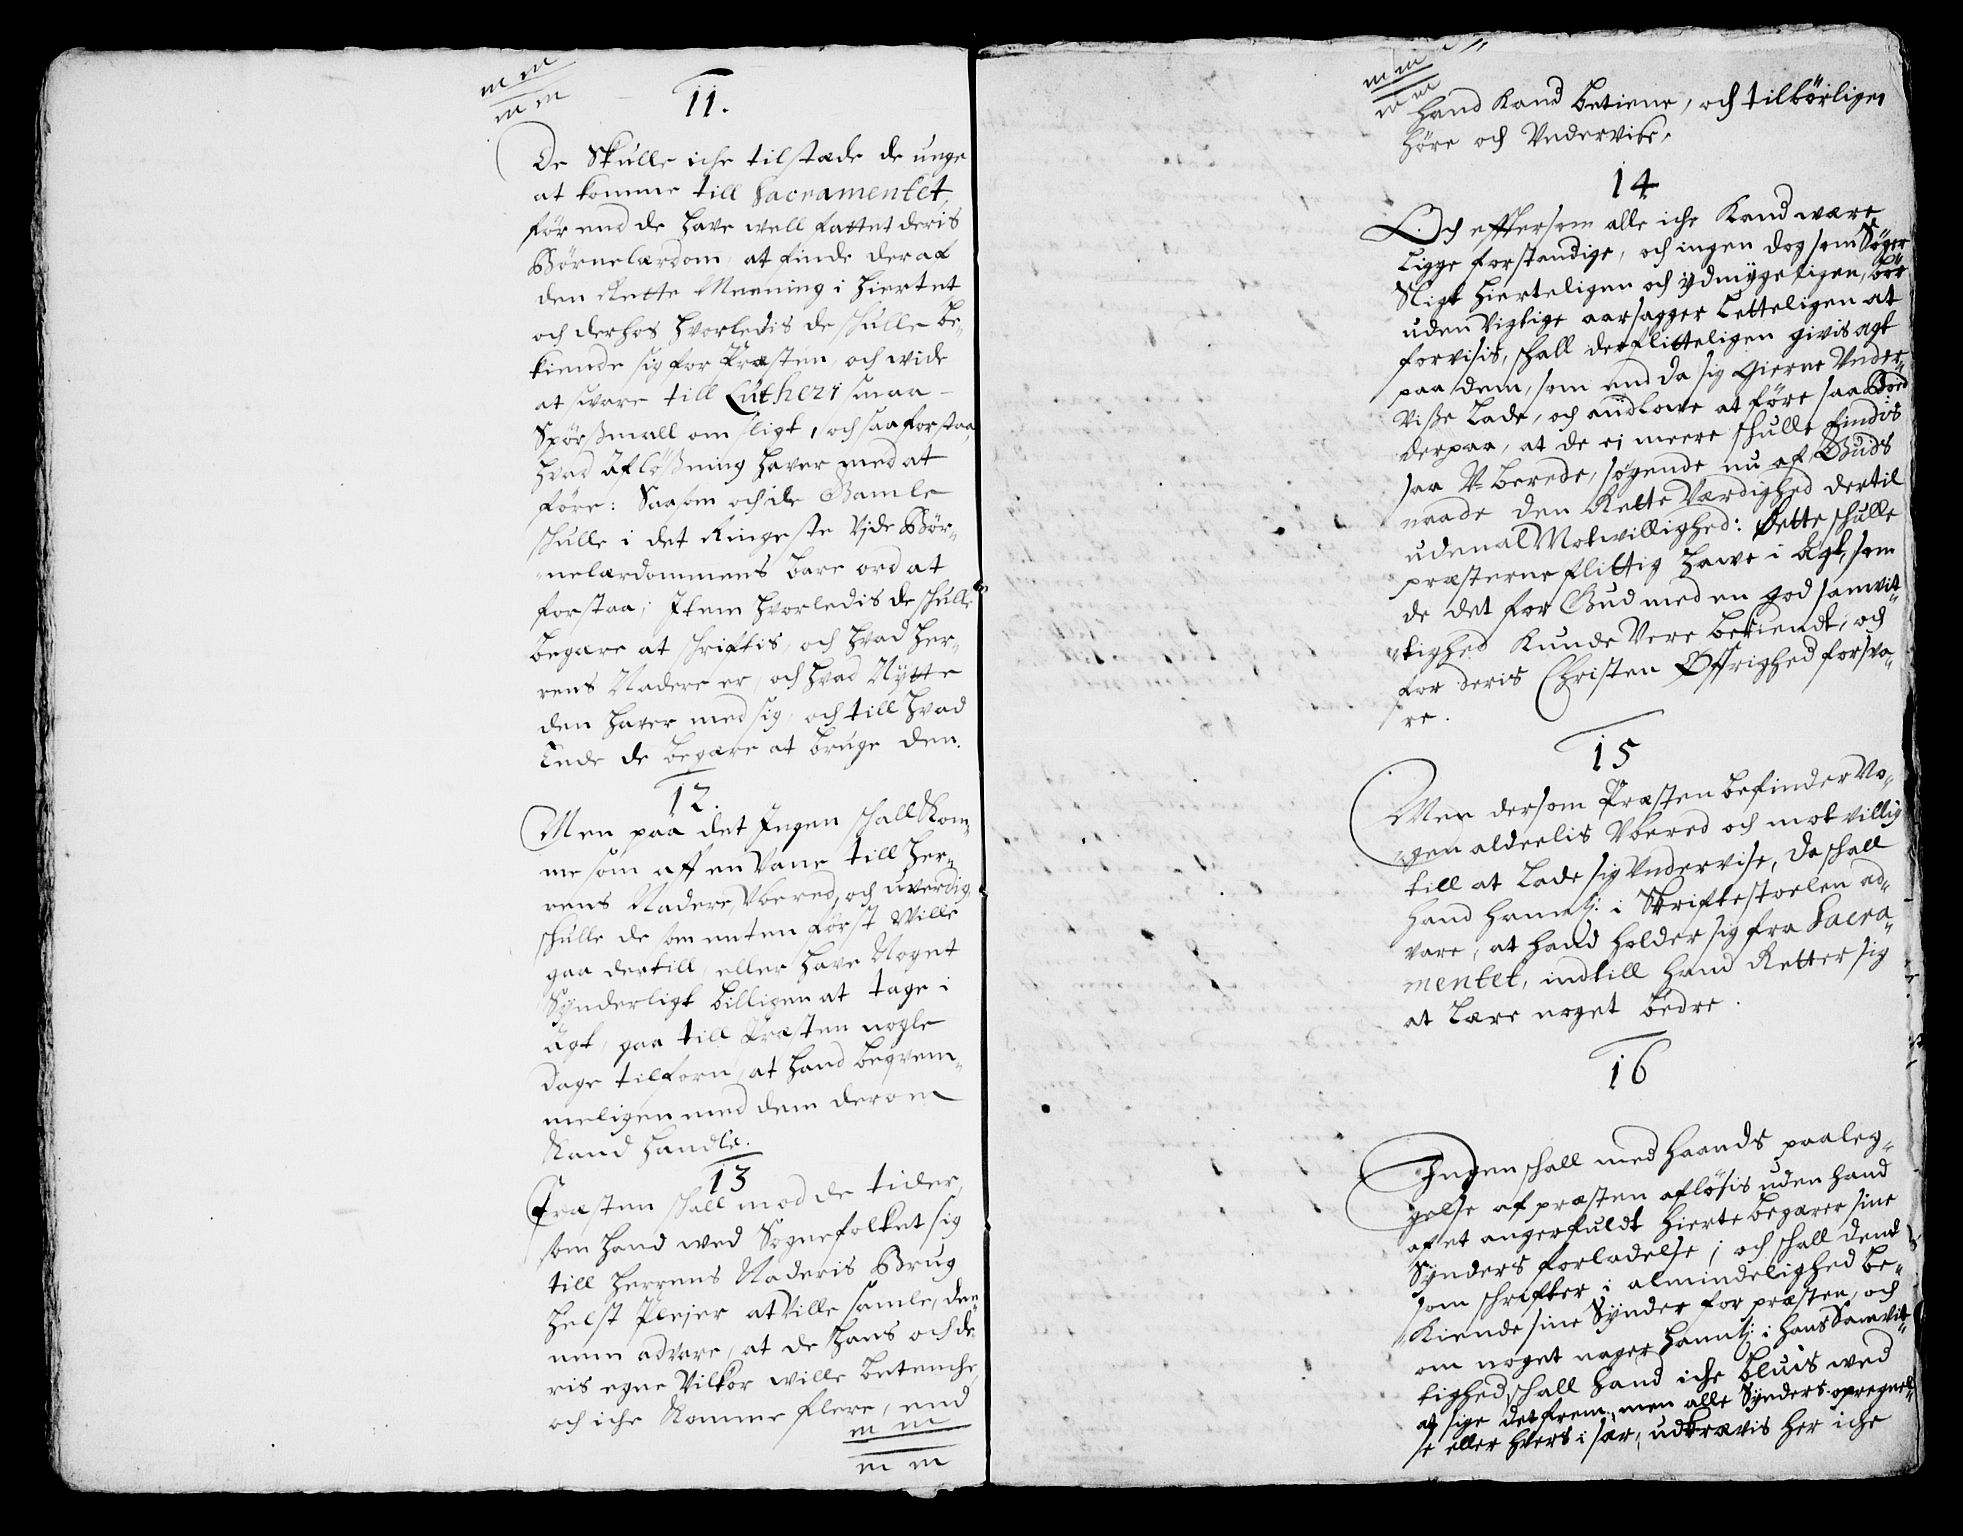 m m
m m
11.
De Skulle iche tilstæde de unge
at komme till Sacramentet,
förend de have well fattet deris
Börnelærdom, at finde deraf
den Rette Meening i hiertet
och derhos hvorledis de schulle be-
kiende sig for Præsten, och wide
at svare till Lutheri smaa-
Spörsmall om sligt, och saa forstaa,
hvad Aflößning haver med at
före: Saasom och de Gamle
schulle i det Ringeste Vide Bör-
nelærdommens bare ord at
forstaa; Item hvorledis de schulle
begære at schriftis, och hvad Her-
rens Nadere er, och hvad Nytte
den haver med sig, och till hvad
Ende de begære at bruge den.
12.
Men paa det Ingen schall Kom-
me som aff en Vane till Her-
rens Nadere, Vbered, och uverdig,
schulle de som enten först Wille
gaa dertill, eller have Noget
Synderligt billigen at tage i
Agt, gaa till Præsten nogle
Dage tilforn, at hand beqvem-
meligen med dem derom
Kand handle.
13
Præsten schall mod de tider,
som hand wed Sognefolket sig
till Herrens Naderis Brug
helst Plejer at Ville samle, den-
nem advare, at de hans och de-
ris egne Vilkor wille betenche,
och iche Komme flere, end
m m
m m
m m
m m
hand Kand betiene, och tilbörligen
höre och Vndervise.
14
Och efftersom alle iche Kand være
Ligge forstandige, och ingen dog som Söger
Sligt hierteligen och ydmygeligen, bör
uden Vigtige aarsagger Letteligen at
forvisis, schall der flitteligen givis agt
paa dem, som end da sig gierne Vnder-
Vise Lade, och andlove at före saa Bod
derpaa, at de ei meere schulle findis
saa V-berede, søgende nu af Guds
naade den Rette Værdighed dertil
uden al Motwillighed: Dette schulle
præsterne flittig have i Agt, som
de det for Gud med en god samvit-
tighed Kunde Vere bekiendt, och
for deris Christen Øffrighed forsva-
re.
15
Men dersom Præsten befinder No-
gen aldeelis Vbered och motvillig
till at Lade sig Vndervise, da schall
hand hannem i Skriftestoelen ad-
vare, at hand holder sig fra Sacra-
mentet, indtill hand Retter sig
at Lære noget bedre.
16
Ingen schall med haands paaleg-
gelse af præsten aflösis uden hand
af et angerfuldt hierte begærer sine
Synders forladelse; och schall dend
som schrifter i almindelighed be-
Kiende sine Synder for præsten, och
om noget nager hannem i hans Samvit-
tighed, schall hand iche bluis wed
at sige det frem, men alle Synders opregnel-
se eller hvers i sær, udkrævis her iche